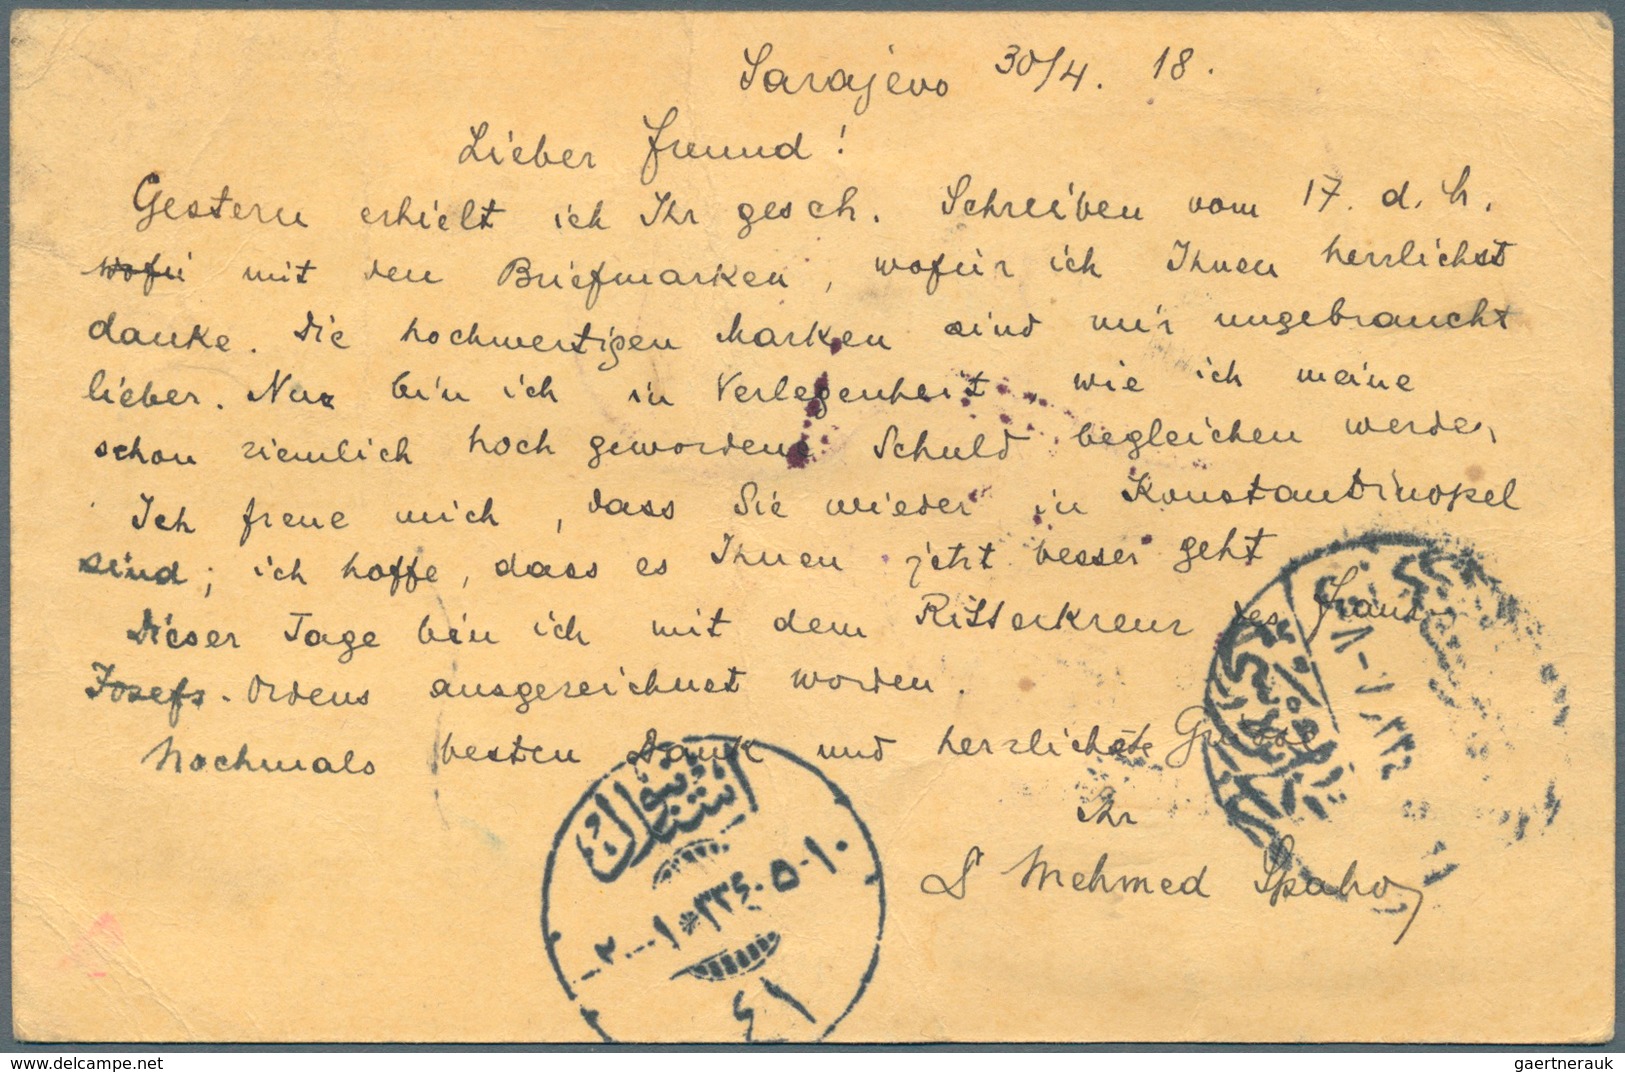 Sarajevo 30/4. 18.
Lieber Freund!
Gestern erhielt ich Ihr gesch. Schreiben vom 17. d. M.
wofü mit den Briefmarken, wofür ich Ihnen herzlichst
danke. Die hochwertigen Marken sind mir ungebraucht
lieber. Nur bin ich in Verlegenheit, wie ich meine
schon ziemlich hoch gewordene Schuld begleichen werde,
Ich freue mich, dass Sie wieder in Konstantinopel
sind; ich hoffe, dass es Ihnen jetzt besser geht
Dieser Tage bin ich mit dem Ritterkreuz des Franz-
Josefs-Ordens ausgezeichnet worden.
Nochmals besten Dank und herzlichste Grüsse
Ihr
Mehmed Spaho
استانبول
١٠-٥-٣٣٤*١-٢
٤١
٨-١-٣٣٤
delcampe.net
gaertnerauk